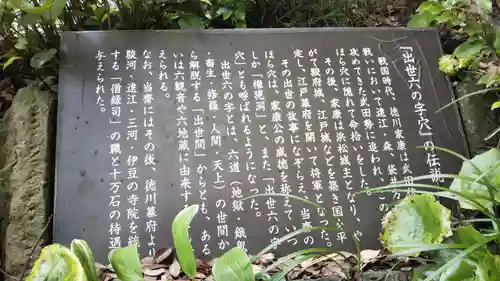 「出世六の字穴」の伝説
戦国時代、徳川家康は武田
戦いにおいて遠江、森、袋井方
攻めてきた武田勢に追われ、この
ほら穴に隠れて命拾いをした。
その後、家康は浜松城主となり、や
がて駿府城、江戸城などを築き国公平
定し、江戸幕府を開いて将軍となった。
その出世の故事にならい、当斎の
ほら穴は家康公の威徳を称えていつ
しか「権現洞」と、また「出世六の字
穴」とも呼ばれるようになった。
出世六の字とは、六道（地獄・餓鬼
・畜生・修羅・人間・天上）の世間か
ら解脱する「出世間」からとも、ある
いは六観音や六地蔵に由来する
えられる。
なお、当斎にはその後、徳川幕府より
駿河・遠江・三河・伊豆の寺院を
する「僧録司」の職と十万石の待遇
与えられた。